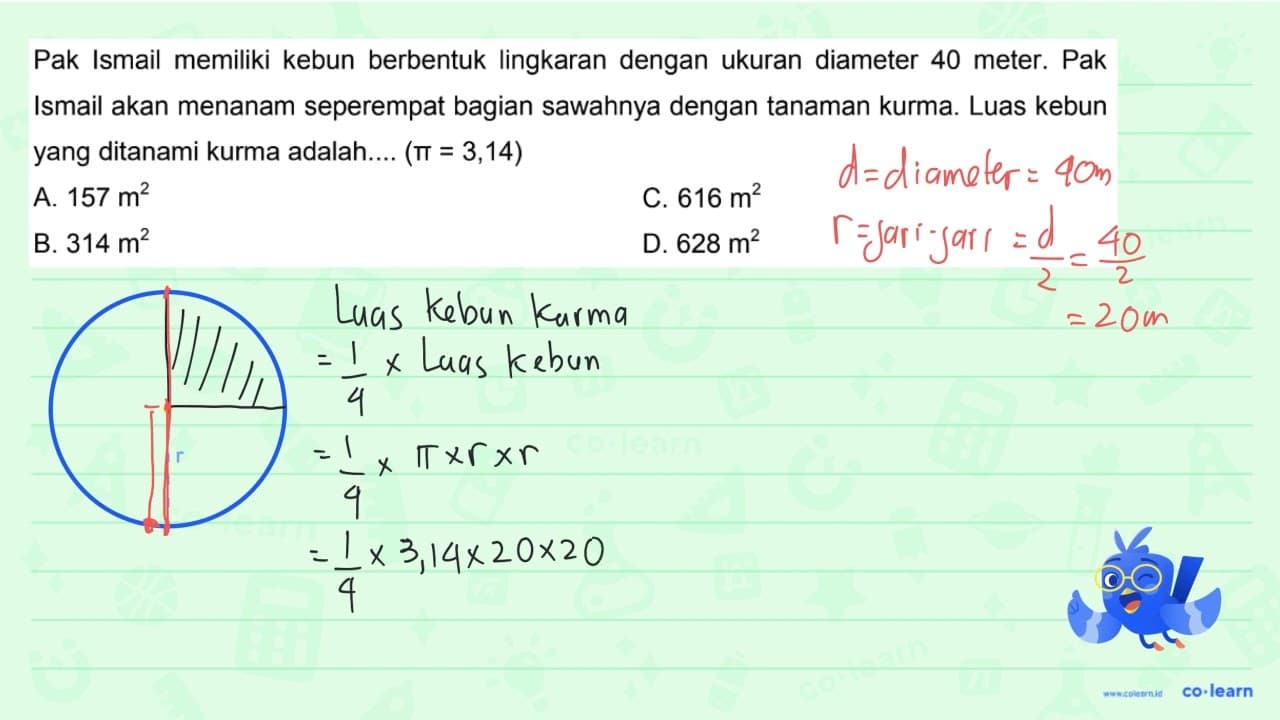 Pak Ismail memiliki kebun berbentuk lingkaran dengan ukuran diameter 40 meter. Pak
Ismail akan menanam seperempat bagian sawahnya dengan tanaman kurma. Luas kebun
yang ditanami kurma adalah.... (π = 3,14)
A. 157 m²
C. 616 m²
B. 314 m²
D. 628 m²
d = diameter = 40m
r = jari-jari = d/2 = 40/2
= 20m
Luas Kebun Kurma
= 1/4 × Luas Kebun
= 1/4 × π × r × r
= 1/4 × 3,14 × 20 × 20
r
co·learn
www.colearn.id co·learn